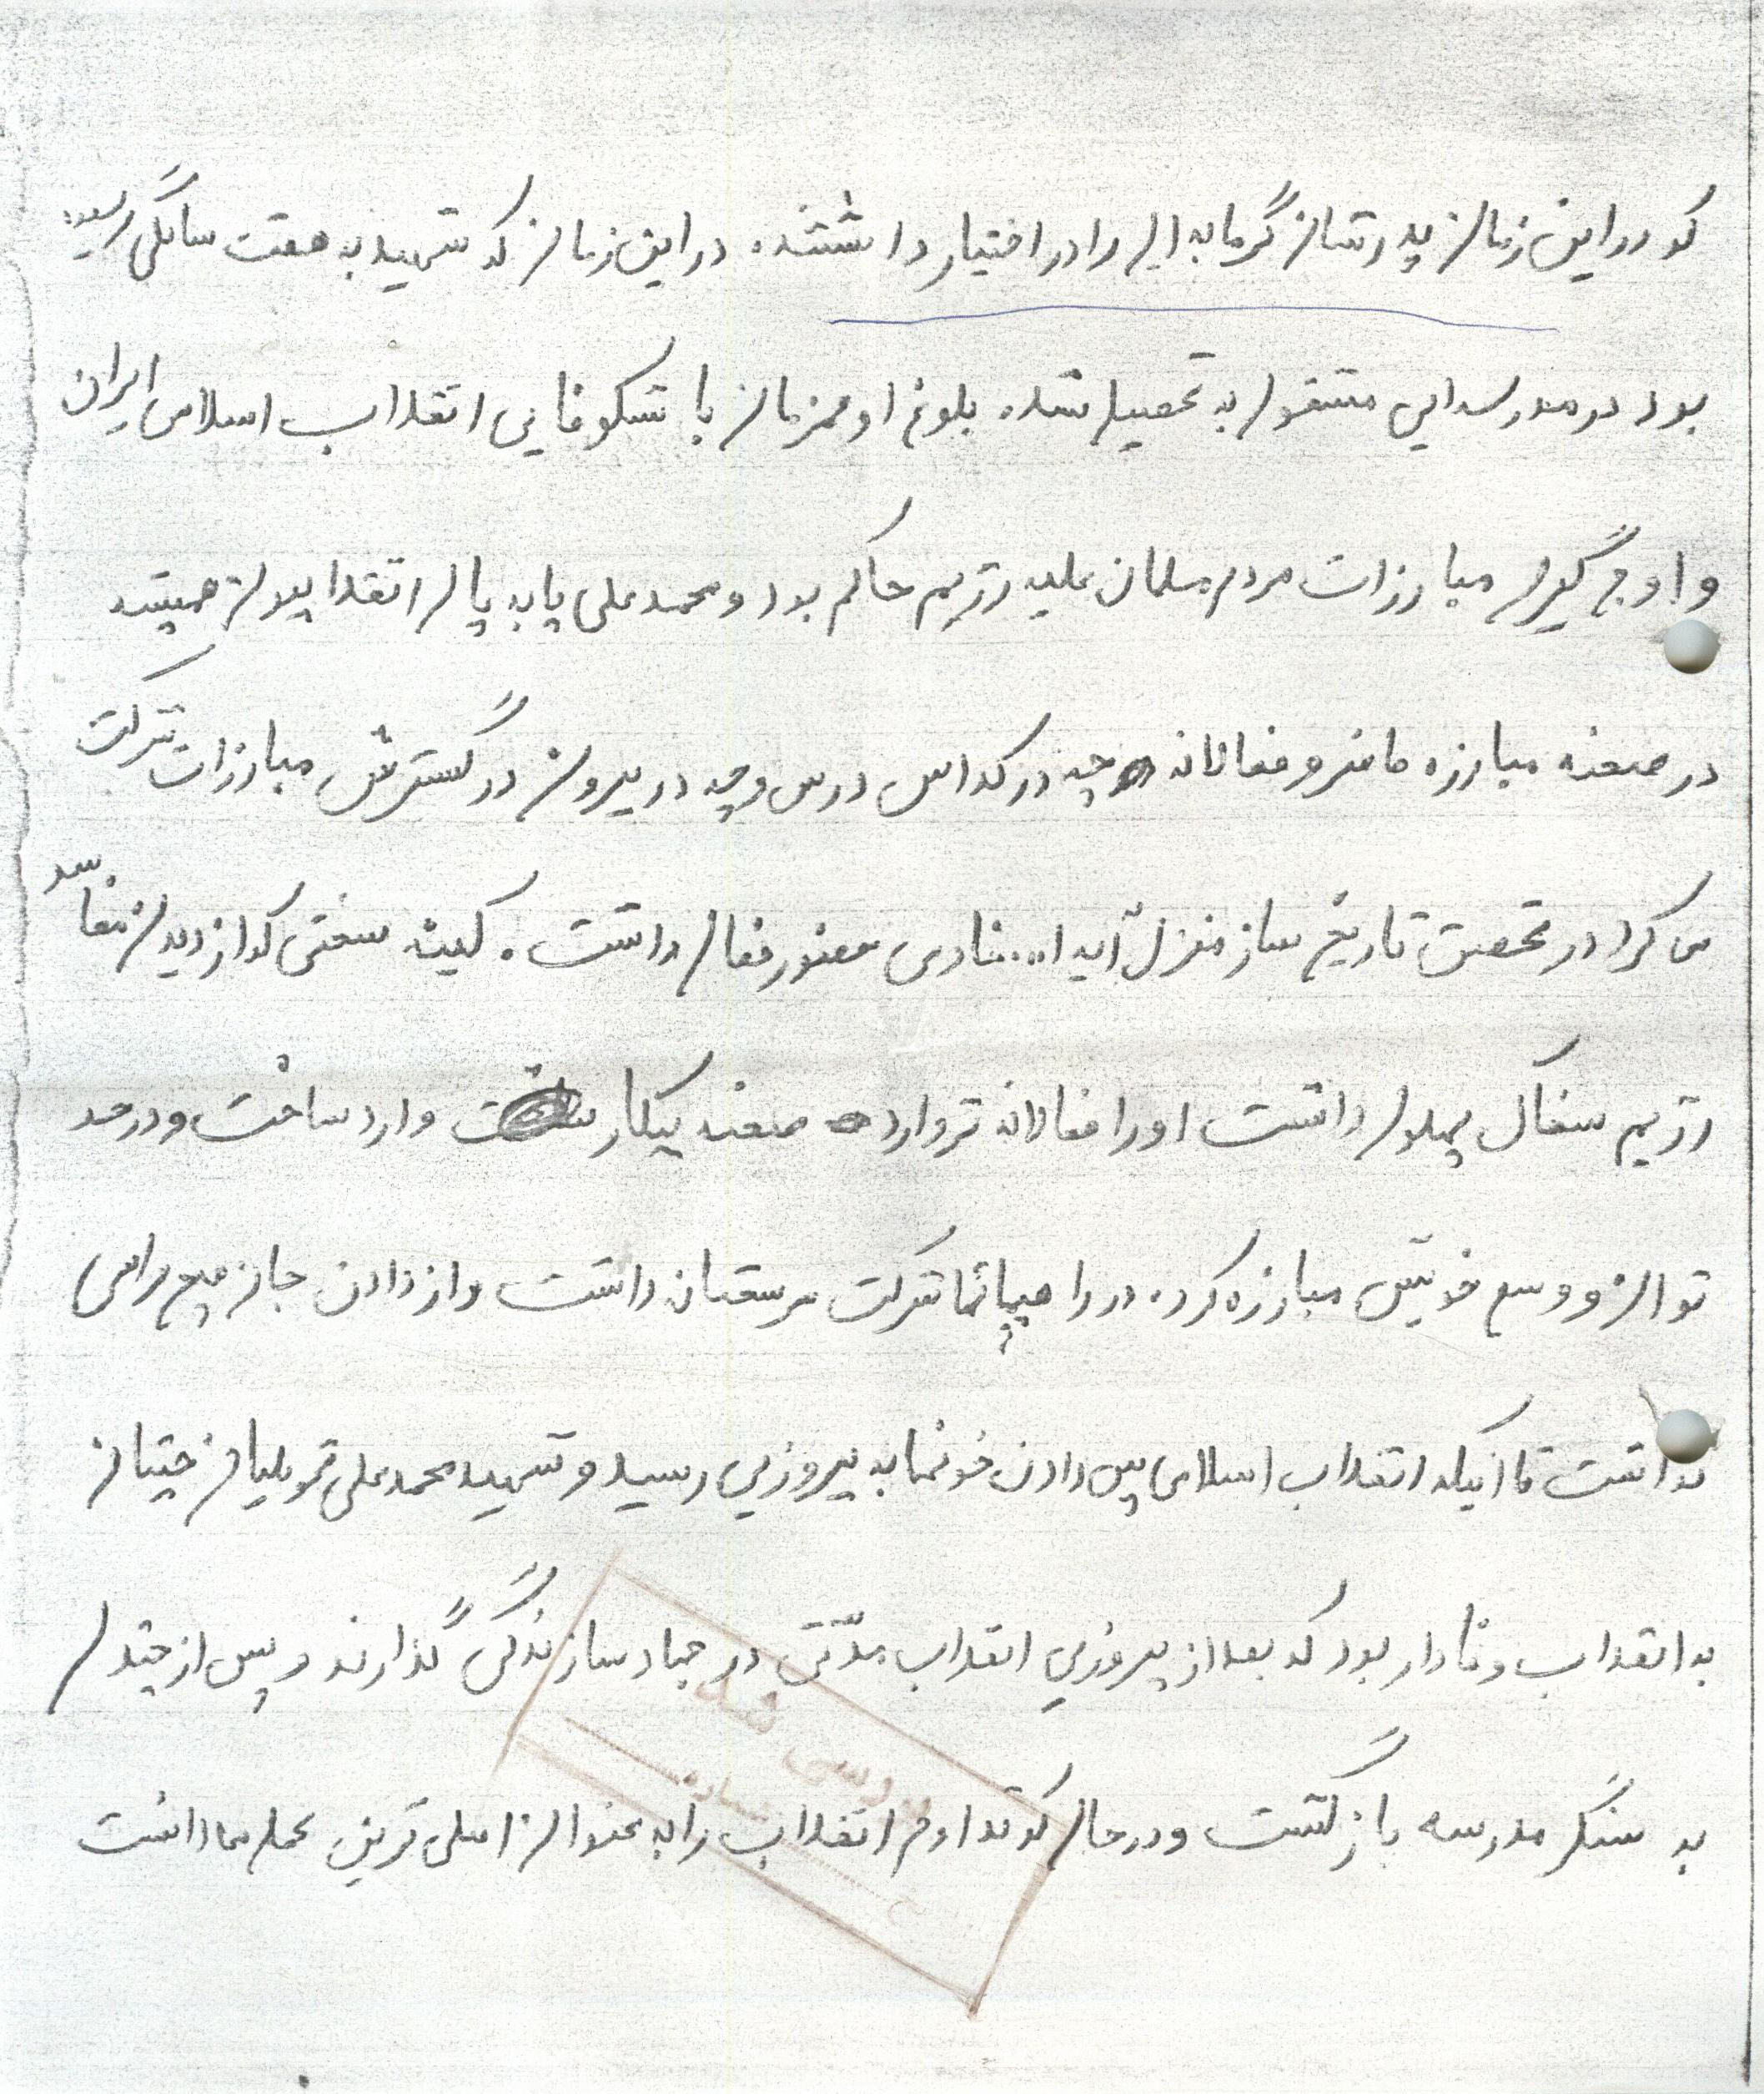 که در این زمان پدرشان گرمابه ای را در اختیار داشتند. در این زمان که شهید به هفت سالگی رسیده
بود در مدرسه ایی مشغول به تحصیل شد. بلوغ او همزمان با شکوفایی انقلاب اسلامی ایران
و اوج گیری مبارزات مردم مسلمان علیه رژیم حاکم بود و محمد علی پا به پای انقلابیون همیشه
در صحنه مبارزه حاضر و فعالانه چه در کلاس درس و چه در بیرون در گسترش مبارزات شرکت
می کرد در تحصن تاریخ ساز منزل آیه ا... خادمی حضور فعال داشت. کینه سختی که از دیدن مفاسد
رژیم سفاک پهلوی داشت او را فعالانه تر وارد صحنه پیکار وارد ساخت و در حد
توان و وسع خویش مبارزه کرد. در راهپیمائیها شرکت سرسختانه داشت و از دادن جان هیچ هراسی
نداشت تا اینکه انقلاب اسلامی پس دادن خونها به پیروزی رسید و شهید محمد علی چنان
به انقلاب وفادار بود که بعد از پیروزی انقلاب مدّتی در جهاد سازندگی گذارند و پس از چندی
به سنگر مدرسه بازگشت و در حالی که تداوم انقلاب را به عنوان اصلی ترین عمل ها داشت